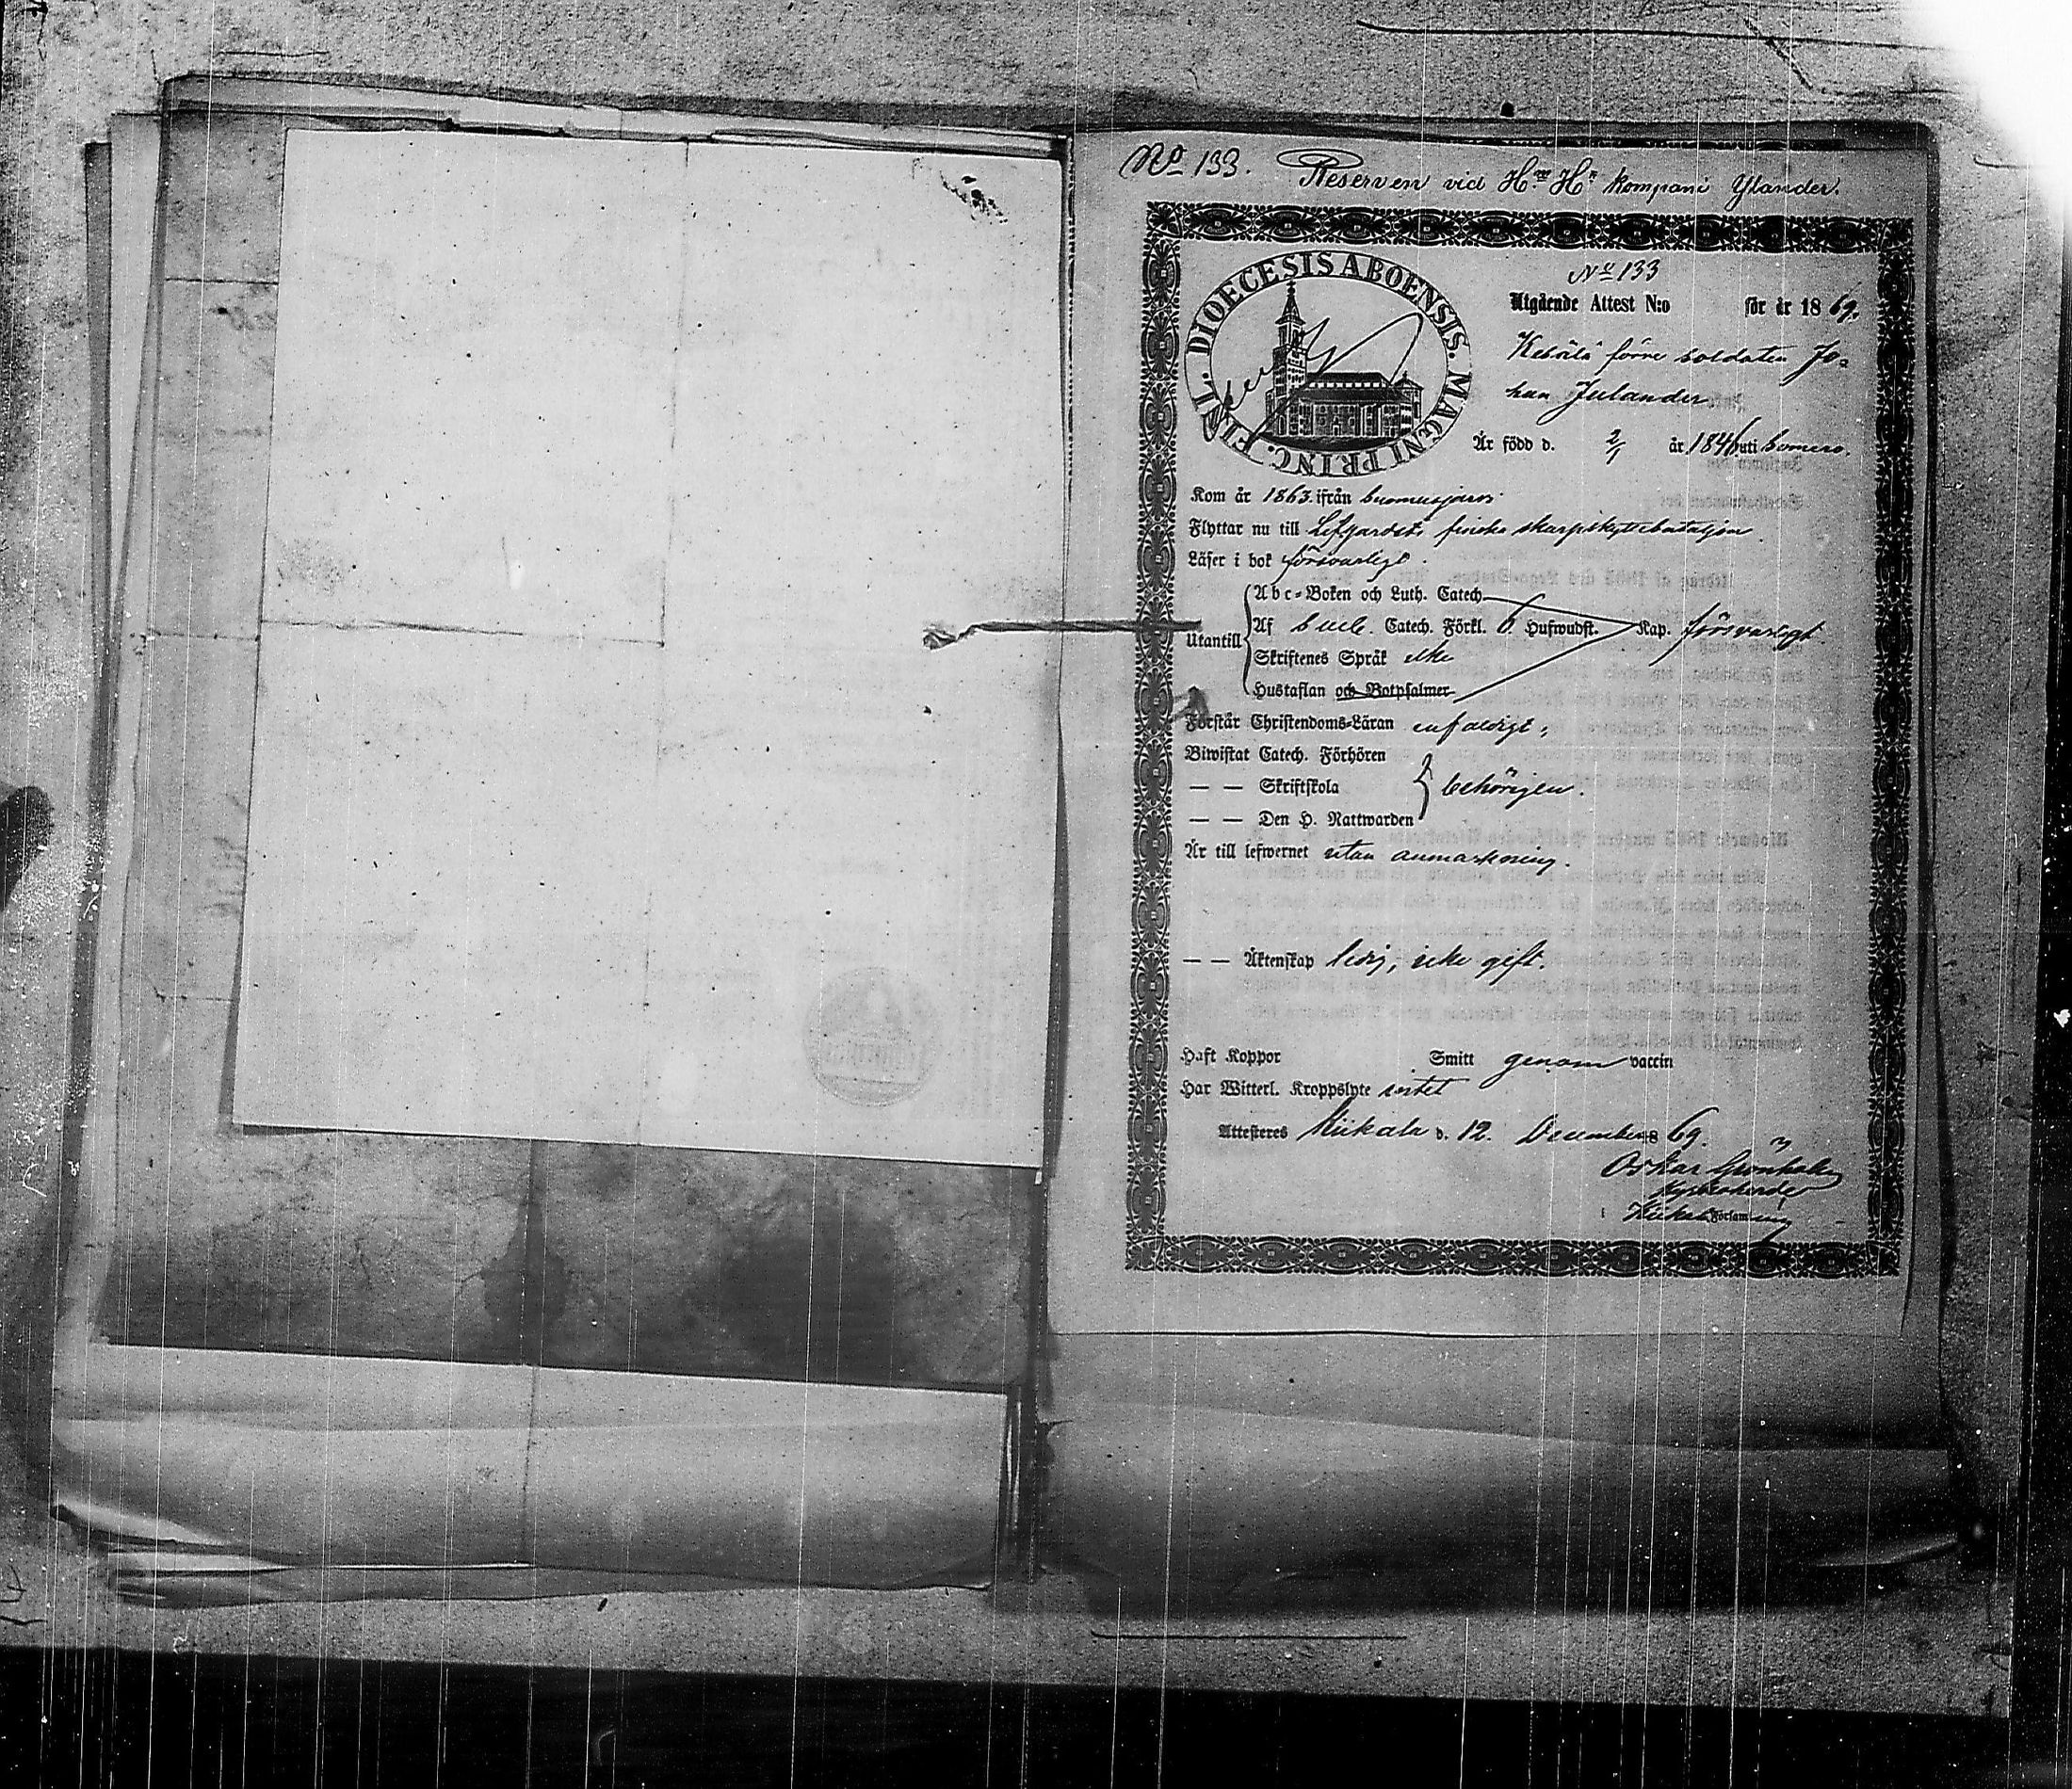 No 133. Reserven vid H kompani Ylander.
DIOECESIS ABOENSIS. MAGNI PRINC. FINL.
No 133
Utgående Attest N:o för år 1869.
förre soldaten Jo-
han Julander
Är född d. 2/1 år 1846 uti Somero.
Kom år 1863. ifrån Suomusjärvi
Flyttar nu till Lifgardets finska skarpskyttebataljon.
Läser i bok försvarligt.
Utantill
Abc-Boken och Luth. Catech.
Af Catech. Förkl. 6 Hufwudst. Kap. försvarligt
Skriftenes Språk icke
Hustaflan och Botpsalmer
Förstår Christendoms-Läran enfaldigt,
Biwistat Catech. Förhören
— — Skriftskola behörigen.
— — Den H. Nattwarden
Är till lefwernet utan anmärkning.
— — Äktenskap ledig, icke gift.
Haft Koppor Smitt genom vaccin
Har Witterl. Kroppslyte intet
Attesteres Kiikala d. 12. December 1869.
Oskar Grönholm
Kyrkoherde
i Kiikala Församling